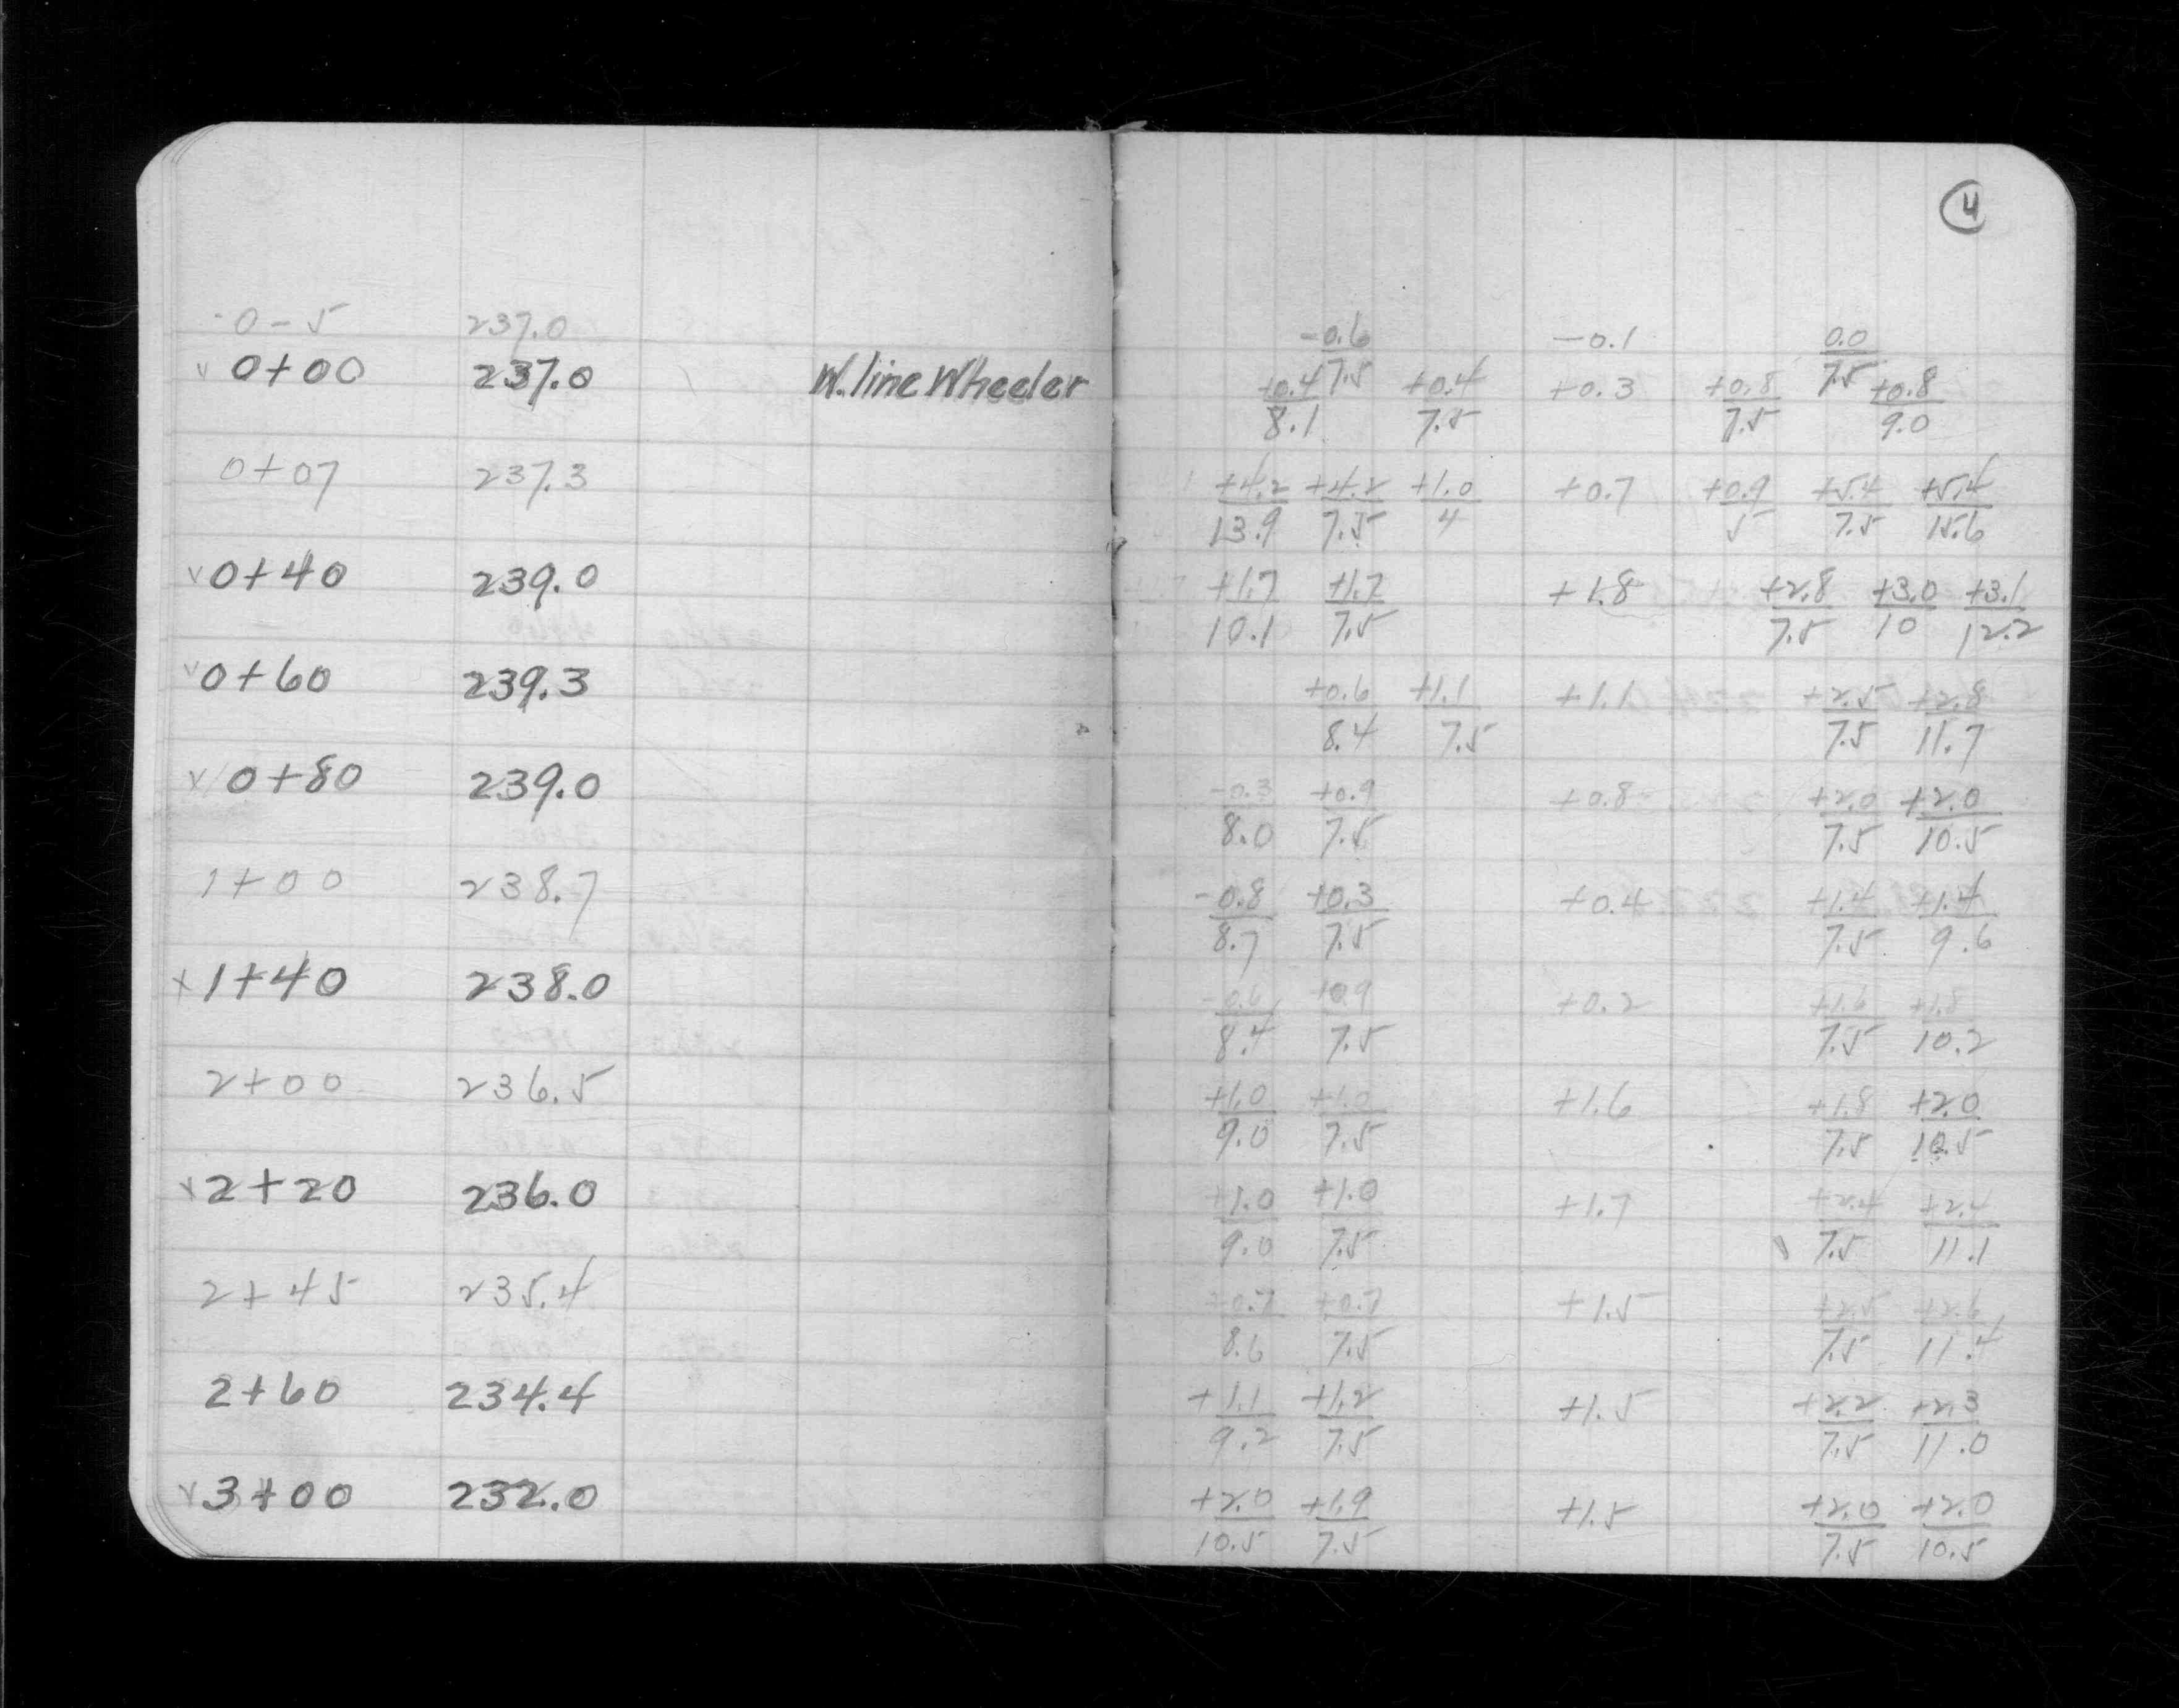 4
0-5 237.0 -0.6 -0.1 0.0
7.5 7.5
0+00 237.0 W. line Wheeler +0.4 +0.4 +0.3 +0.8 +0.8
8.1 7.5 7.5 9.0
0+07 237.3 +4.2 +4.2 +1.0 +0.7 +0.9 +5.4 +5.4
13.9 7.5 4 5 7.5 15.6
0+40 239.0 +1.7 +1.7 +1.8 +2.8 +3.0 +3.1
10.1 7.5 7.5 10 12.2
0+60 239.3 +0.6 +1.1 +1.1 +2.5 +2.8
8.4 7.5 7.5 11.7
0+80 239.0 -0.3 +0.9 +0.8 +2.0 +2.0
8.0 7.5 7.5 10.5
1+00 238.7 -0.8 +0.3 +0.4 +1.4 +1.4
8.7 7.5 7.5 9.6
1+40 238.0 -0.6 +0.9 +0.2 +1.6 +1.8
8.4 7.5 7.5 10.2
2+00 236.5 +1.0 +1.0 +1.6 +1.8 +2.0
9.0 7.5 7.5 10.5
2+20 236.0 +1.0 +1.0 +1.7 +2.4 +2.4
9.0 7.5 7.5 11.1
2+45 235.4 +0.7 +0.7 +1.5 +2.5 +2.6
8.6 7.5 7.5 11.4
2+60 234.4 +1.1 +1.2 +1.5 +2.2 +2.3
9.2 7.5 7.5 11.0
3+00 232.0 +2.0 +1.9 +1.5 +2.0 +2.0
10.5 7.5 7.5 10.5